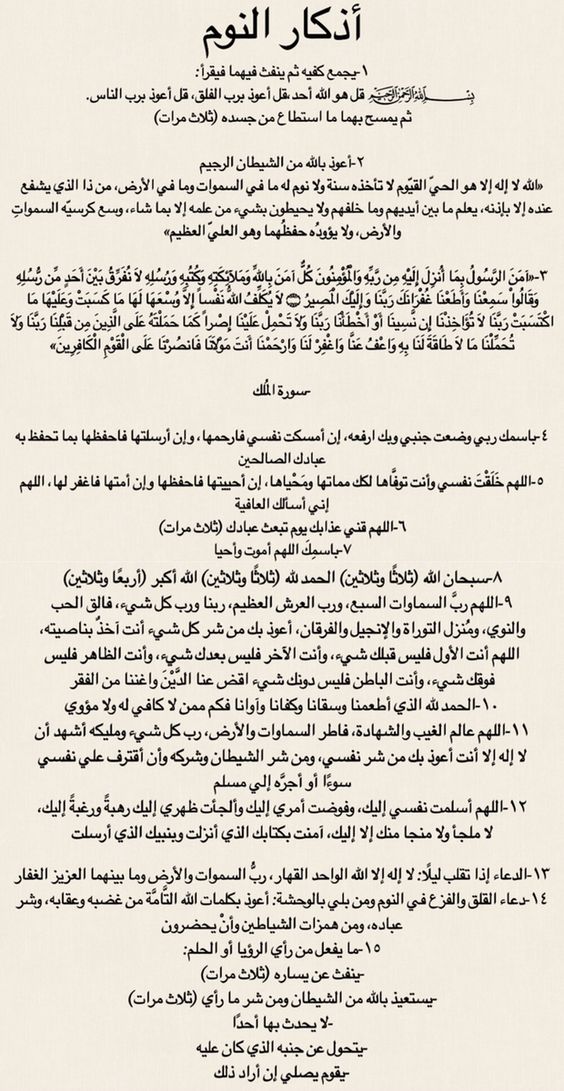 أذكار النوم
١-يجمع كفيه ثم ينفث فيهما فيقرأ:
بسم الله الرحمن الرحيم قل هو الله أحد،قل أعوذ برب الفلق، قل أعوذ برب الناس.
ثم يمسح بهما ما استطاع من جسده (ثلاث مرات)
٢-أعوذ بالله من الشيطان الرجيم
«الله لا إله إلا هو الحيّ القيّوم لا تأخذه سنة ولا نوم له ما في السموات وما في الأرض، من ذا الذي يشفع
عنده إلا بإذنه، يعلم ما بين أيديهم وما خلفهم ولا يحيطون بشيء من علمه إلا بما شاء، وسع كرسيّه السمواتِ
والأرض، ولا يؤودُه حفظُهما وهو العليّ العظيم»
٣-«آمَنَ الرَّسُولُ بِمَا أُنزِلَ إِلَيْهِ مِن رَبِّهِ وَالْمُؤْمِنُونَ كُلٌّ آمَنَ بِاللَّهِ وَمَلَائِكَتِهِ وَكُتُبِهِ وَرُسُلِهِ لَا نُفَرِّقُ بَيْنَ أَحَدٍ مِّن رُّسُلِهِ
وَقَالُوا سَمِعْنَا وَأَطَعْنَا غُفْرَانَكَ رَبَّنَا وَإِلَيْكَ الْمَصِيرُ لَا يُكَلِّفُ اللَّهُ نَفْساً إِلَّا وُسْعَهَا لَهَا مَا كَسَبَتْ وَعَلَيْهَا مَا
اكْتَسَبَتْ رَبَّنَا لَا تُؤَاخِذْنَا إِن نَّسِينَا أَوْ أَخْطَأْنَا رَبَّنَا وَلَا تَحْمِلْ عَلَيْنَا إِصْراً كَمَا حَمَلْتَهُ عَلَى الَّذِينَ مِن قَبْلِنَا رَبَّنَا وَلَا
تُحَمِّلْنَا مَا لَا طَاقَةَ لَنَا بِهِ وَاعْفُ عَنَّا وَاغْفِرْ لَنَا وَارْحَمْنَا أَنتَ مَوْلَانَا فَانصُرْنَا عَلَى الْقَوْمِ الْكَافِرِينَ»
-سورة المُلك
٤-باسمك ربي وضعت جنبي وبك ارفعه، إن أمسكت نفسي فارحمها، وإن أرسلتها فاحفظها بما تحفظ به
عبادك الصالحين
٥-اللهم خَلَقْتَ نفسي وأنت توفّاها لك مماتها ومَحْياها، إن أحييتها فاحفظها وإن أمتها فاغفر لها، اللهم
إني أسألك العافية
٦-اللهم قني عذابك يوم تبعث عبادك (ثلاث مرات)
٧-باسمِكَ اللهم أموت وأحيا
٨-سبحان الله (ثلاثًا وثلاثين) الحمد لله (ثلاثًا وثلاثين) الله أكبر (أربعًا وثلاثين)
٩-اللهم ربَّ السماوات السبع، ورب العرش العظيم، ربنا ورب كل شيء، فالق الحب
والنوي، ومُنزل التوراة والإنجيل والفرقان، أعوذ بك من شر كل شيء أنت آخذٌ بناصيته،
اللهم أنت الأول فليس قبلك شيء، وأنت الآخر فليس بعدك شيء، وأنت الظاهر فليس
فوقك شيء، وأنت الباطن فليس دونك شيء اقض عنا الدَّيْنَ واغننا من الفقر
١٠-الحمد لله الذي أطعمنا وسقانا وكفانا وآوانا فكم ممن لا كافي له ولا مؤوي
١١-اللهم عالم الغيب والشهادة، فاطر السماوات والأرض، رب كل شيء ومليكه أشهد أن
لا إله إلا أنت أعوذ بك من شر نفسي، ومن شر الشيطان وشركه وأن أقترف علي نفسي
سوءًا أو أجرَّه إلي مسلم
١٢-اللهم أسلمت نفسي إليك، وفوضت أمري إليك وألجأت ظهري إليك رهبةً ورغبةً إليك،
لا ملجأ ولا منجا منك إلا إليك، آمنت بكتابك الذي أنزلت وبنبيك الذي أرسلت
١٣-الدعاء إذا تقلب ليلًا: لا إله إلا الله الواحد القهار، ربُّ السموات والأرض وما بينهما العزيز الغفار
١٤-دعاء القلق والفزع في النوم ومن بلي بالوحشة: أعوذ بكلمات الله التَّامَّة من غضبه وعقابه، وشر
عباده، ومن همزات الشياطين وأنْ يحضرون
١٥-ما يفعل من رأي الرؤيا أو الحلم:
-ينفث عن يساره (ثلاث مرات)
-يستعيذ بالله من الشيطان ومن شر ما رأي (ثلاث مرات)
-لا يحدث بها أحدًا
-يتحول عن جنبه الذي كان عليه
-يقوم يصلي إن أراد ذلك